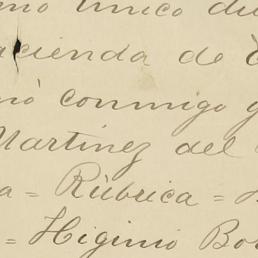 mo único du
acienda de
nó conmigo y
Martinez del
a = Rúbrica =
= Higinio Bo